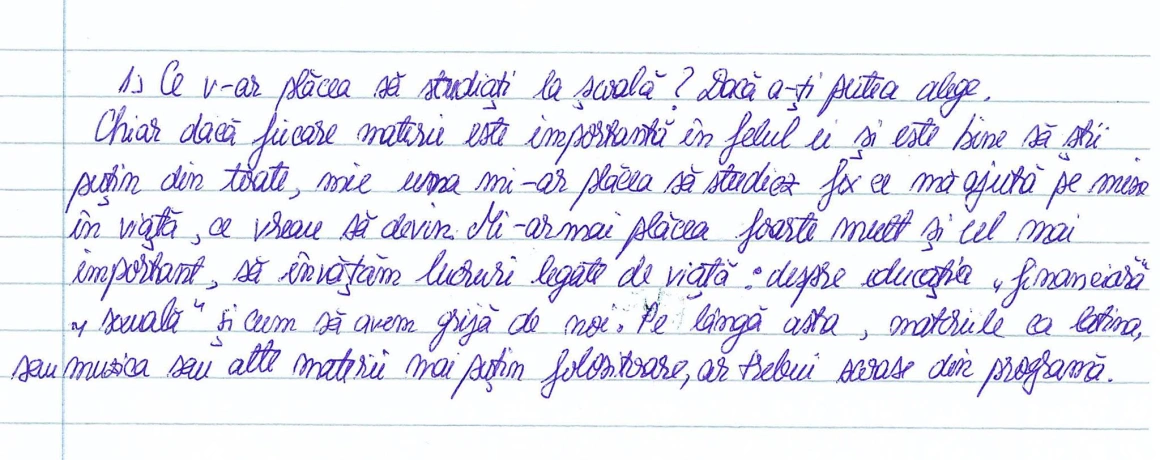 1.) Ce v-ar plăcea să studiați la școală? Dacă a-ți putea alege.
Chiar dacă fiecare materie este importantă în felul ei și este bine să știi
puțin din toate, mie una mi-ar plăcea să studiez fix ce mă ajută pe mine
în viață, ce vreau să devin. Mi-ar mai plăcea foarte mult și cel mai
important, să învățăm lucruri legate de viață: despre educația „financiară”
„sexuală” și cum să avem grijă de noi. Pe lângă asta, materiile ca latina,
sau muzica sau alte materii mai puțin folositoare, ar trebui scoase din programă.